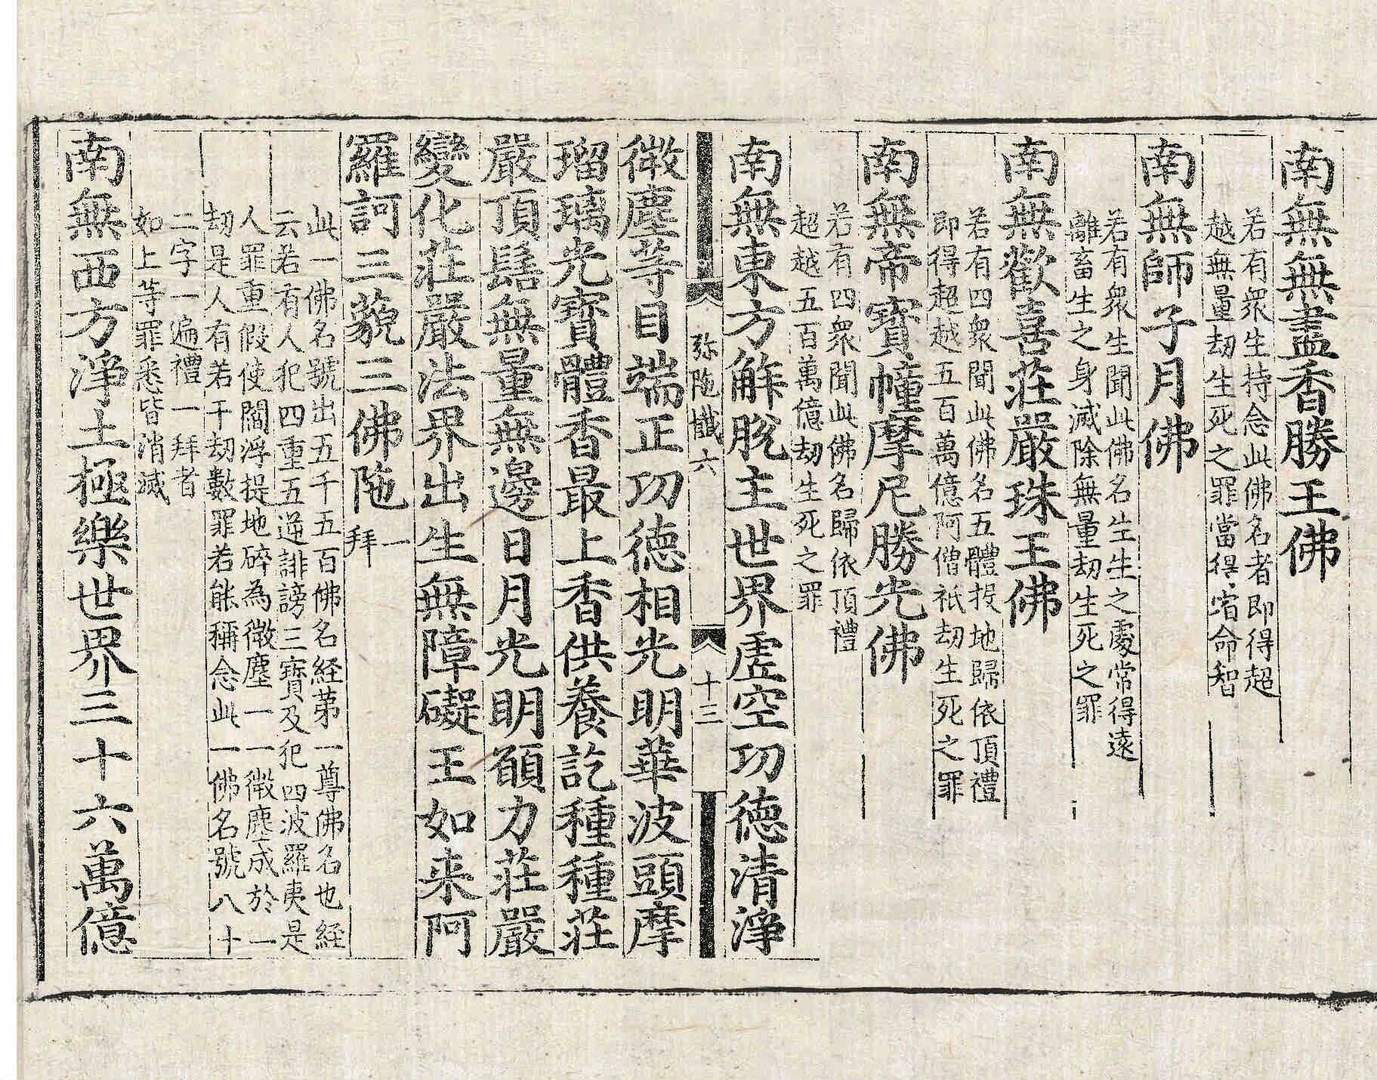 南無無盡香勝王佛
若有衆生持念此佛名者即得超
越無量劫生死之罪當得宿命智
南無師子月佛
若有衆生聞此佛名生生之處常得遠
離畜生之身滅除無量劫生死之罪
南無歡喜莊嚴珠王佛
若有四衆聞此佛名五體投地歸依頂禮
即得超越五百萬億阿僧祇劫生死之罪
南無帝寶幢摩尼勝光佛
若有四衆聞此佛名歸依頂禮
超越五百萬億劫生死之罪
南無東方解脫主世界虛空功德清淨
弥陁懺六
十三
微塵等目端正功德相光明華波頭摩
瑠璃光寶體香最上香供養訖種種莊
嚴頂髻無量無邊日月光明願力莊嚴
變化莊嚴法界出生無障礙王如来阿
羅訶三藐三佛陁一拜
此一佛名號出五千五百佛名經第一尊佛名也經
云若有人犯四重五逆誹謗三寶及犯四波羅夷是
人罪重假使閻浮提地碎為微塵一一微塵成於一
劫是人有若干劫數罪若能稱念此一佛名號八十
二字一遍禮一拜者
如上等罪悉皆消滅
南無西方淨土極樂世界三十六萬億